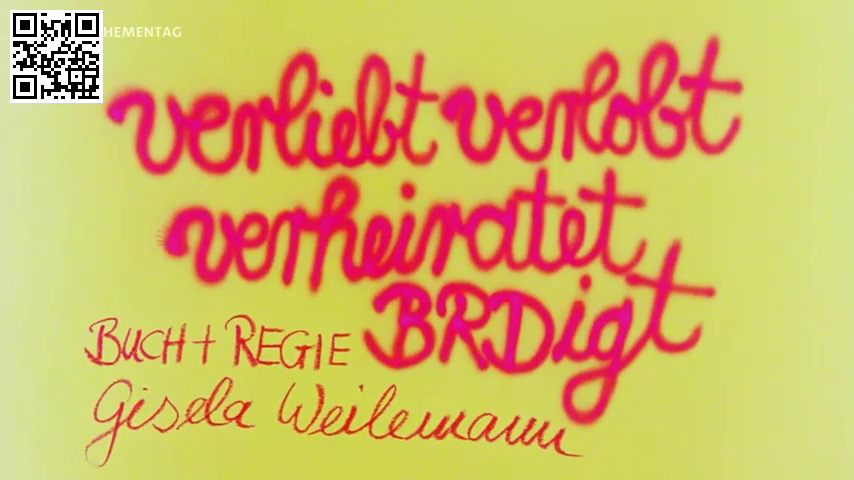 HEMENTAG
verliebt verlobt
verheiratet
BRDigt
BUCH + REGIE
Gisela Weilemann